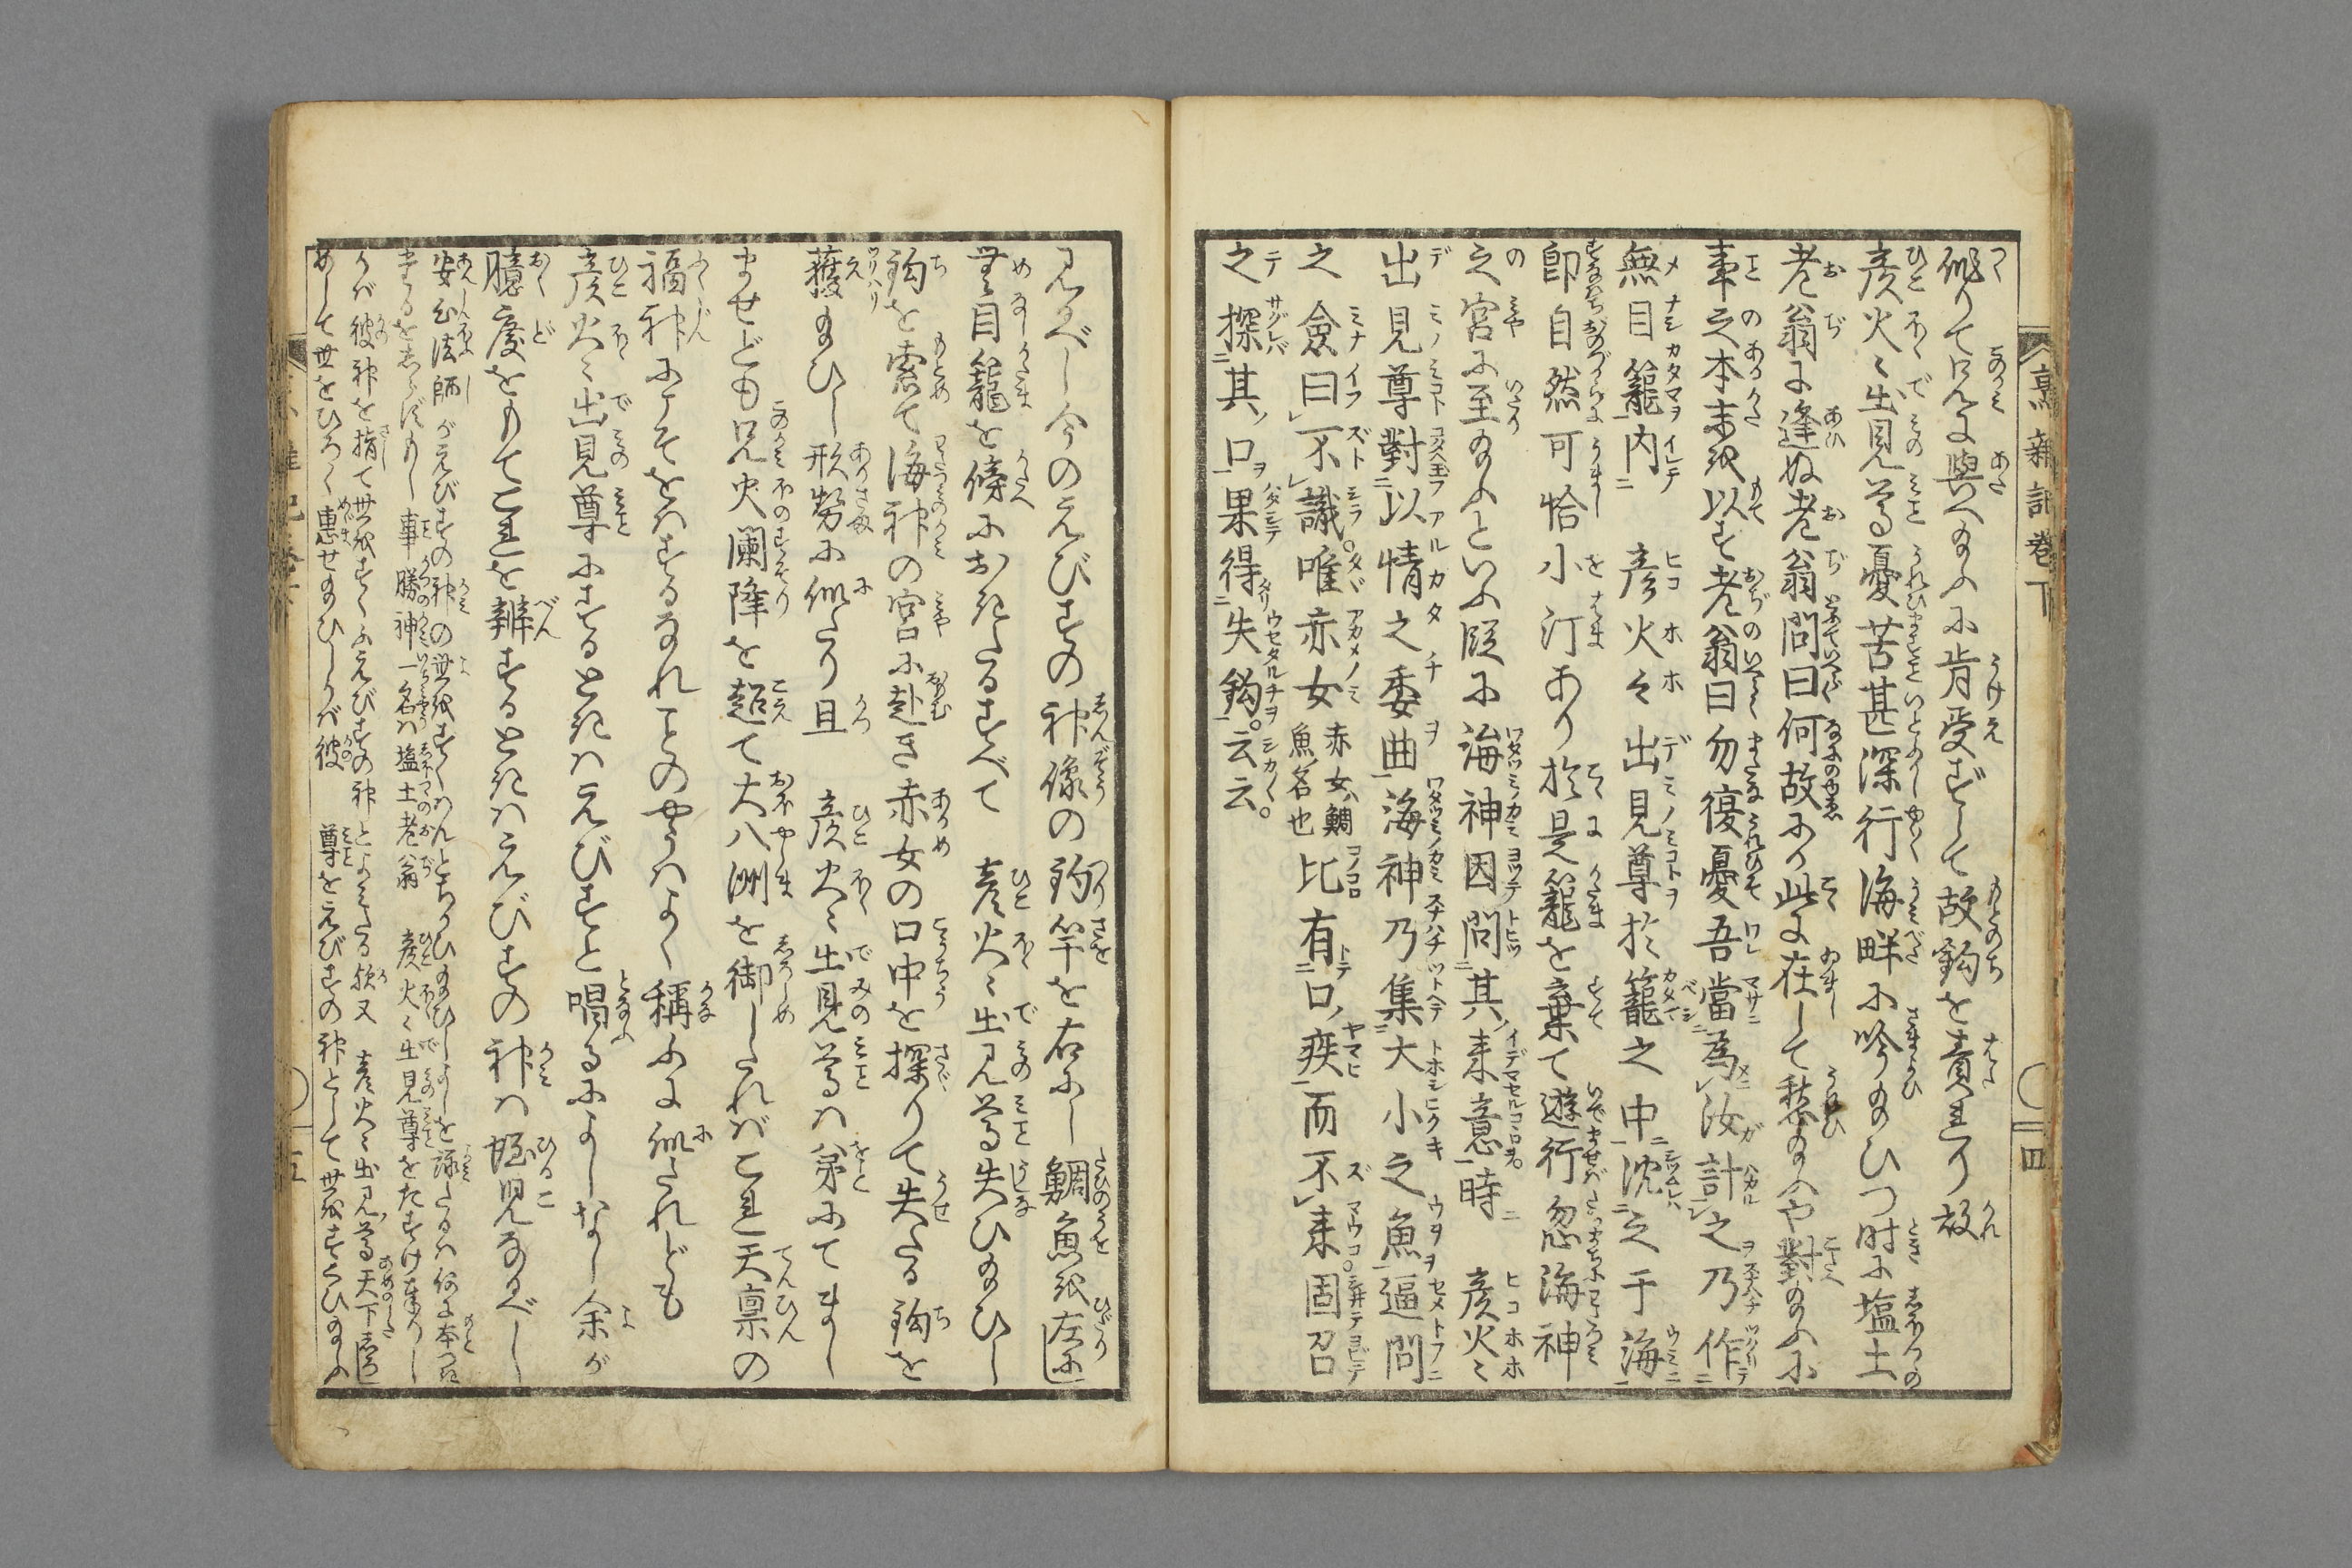 烹雜記卷下
〇二四
作りて兄に與へ給ふに肯受ずして故鈎を責はたれり故
彦火〻出見尊憂苦甚深行海畔に吟ひ給ひつ時に塩土
老翁に逢ぬ老翁問曰何故にか此に在して愁給ふや對給ふに
事之本末を以す老翁曰勿復憂吾當為汝計之乃作
無目籠内彦火々出見尊於籠之中沈之于海
即自然可怜小汀あり於是籠を棄て遊行忽海神
之宮に至給ふといふ段に海神因問其来意時彦火〻
出見尊對以情之委曲海神乃集大小之魚逼問
之僉曰不識。唯赤女赤女鯛魚名也比有口疾而不来。固召
之探其口果得失鈎。云云。
見るべし今のえびすの神像の釣竿を右にし鯛魚を左にし
無目籠を傍におきたるすべて彦火〻出見尊失ひ給ひし
鈎を索て海神の宮に赴き赤女の口中を探りて失たる鈎を
獲給ひし形勢に似たり且彦火〻出見尊は弟にてまし
ませども兄火闌降を超て大八洲を御したればこれ天禀の
福神にこそをはするなれことのやうはよく稱ふに似たれども
彦火〻出見尊にするときはえびすと唱るによしなし余が
臆度をもてこれを辨するときはえびすの神は蛭児なるべし
安心法師がえびすの神の世をすくはんとちかひ給ひしよしを詠たるは何に本つき
けるをしらずもし事勝神一名は塩土老翁彦火〻出見尊をたすけ奉りし
かば彼神を指て世をすくふえびすの神とよみたる欤又彦火〻出見尊天下しろし
めして世をひろく惠せ給ひしかば彼尊をえびすの神として世をすくひ給ふ